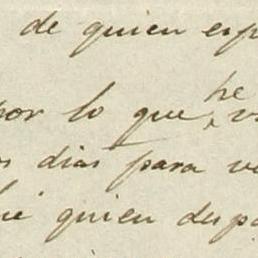 de quien esp
por lo que he v
s dias para ve
hé quien despa